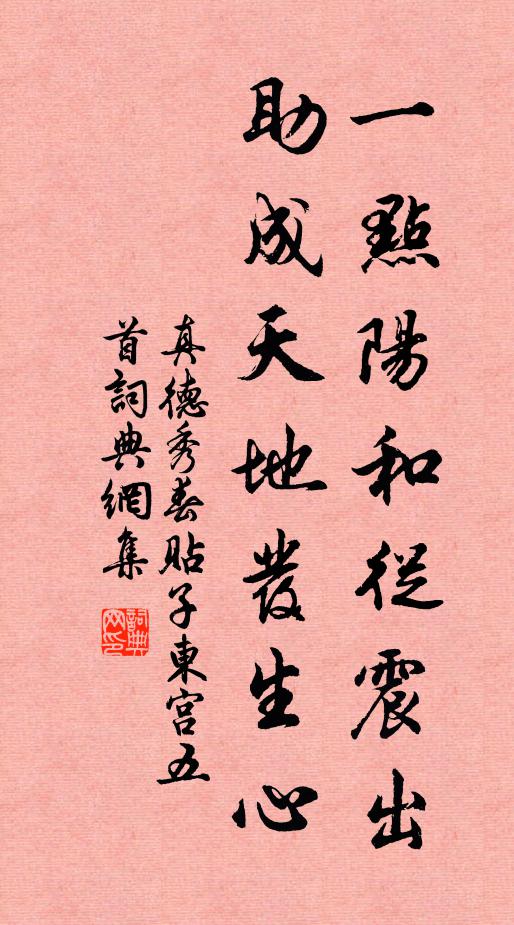 一點陽和從震出
助成天地發生心
真德秀春貼子東宮五
首詞典網集
詞典网印